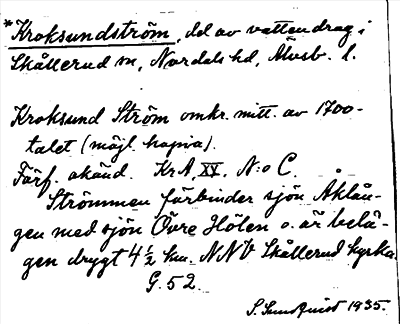 *Kroksundström, del av vattendrag i
Skållerud sn, Nordals hd, Älvsb. l.
Kroksund Ström omkr. mitt. av 1700-
talet (möjl. kopia).
Förf. okänd. Kr A, XV, N:o C.
Strömmen förbinder sjön Åklån-
gen med sjön Övre Hölen o. är belä-
gen drygt 4 ½ km. NNV Skållerud kyrka.
G. 52.
S. Sundquist 1935.